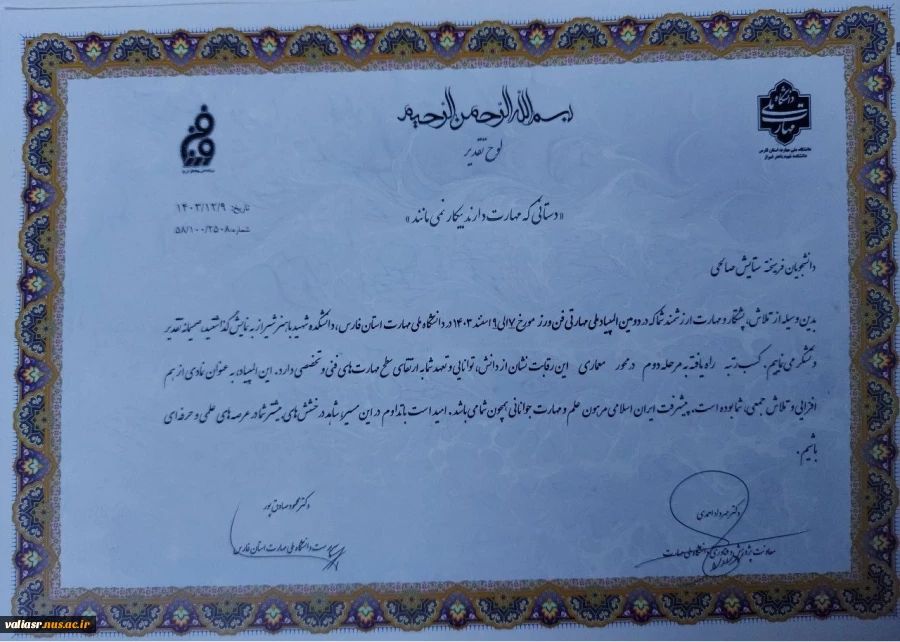 بسم الله الرحمن الرحیم
لوح تقدیر
دانشگاه ملی مهارت
دانشگاه ملی مهارت استان فارس
دانشکده شهید باهنر شیراز
تاریخ: ۱۴۰۳/۱۲/۹
شماره: ۵۸/۱۰۰/۲۵۰۸
«دستانی که مهارت دارند بیکار نمی مانند»
دانشجویان فرهیخته ستایش صالحی
بدین وسیله از تلاش، پشتکار و مهارت ارزشمند شما که در دومین المپیاد ملی مهارتی فن ورز مورخ ۷ الی ۹ اسفند ۱۴۰۳ در دانشگاه ملی مهارت استان فارس، دانشکده شهید باهنر شیراز به نمایش گذاشتید، صمیمانه تقدیر
و تشکر می نماییم. کسب رتبه راه یافته به مرحله دوم در محور معماری این رقابت نشان از دانش، توانایی و تعهد شما به ارتقای سطح مهارت های فنی و تخصصی دارد. این المپیاد، به عنوان نمادی از هم
افزایی و تلاش جمعی، شما بوده است. پیشرفت ایران اسلامی مرهون علم و مهارت جوانانی همچون شما می باشد. امید است با تداوم در این مسیر، شاهد درخشش های بیشتر شما در عرصه های علمی و حرفه ای
باشیم.
دکتر مهرداد احمدی
معاونت پژوهش و فناوری دانشگاه ملی مهارت
دکتر محمود صادق پور
سرپرست دانشگاه ملی مهارت استان فارس
valiasr.nus.ac.ir